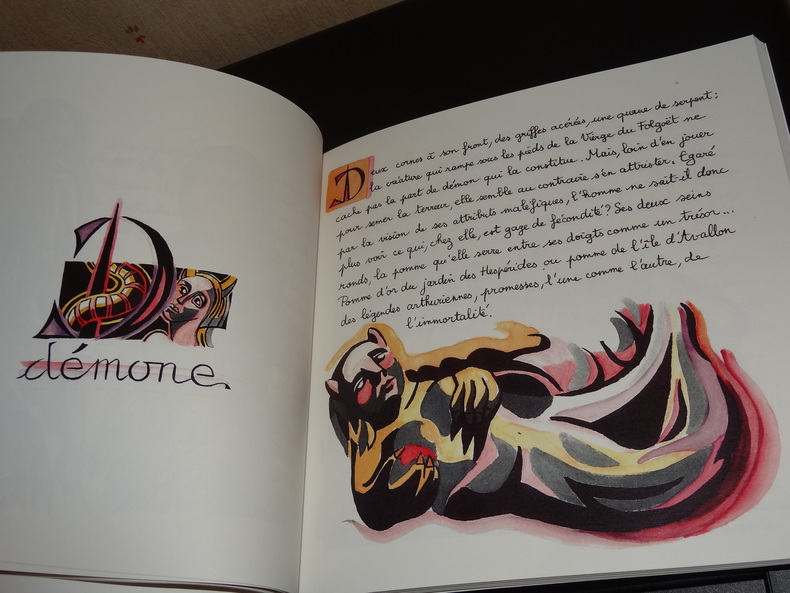 D
démone
Deux cornes à son front, des griffes acérées, une queue de serpent :
la créature qui rampe sous les pieds de la Vierge du Folgoët ne
cache pas la part de démon qui la constitue. Mais, loin d'en jouer
pour semer la terreur, elle semble au contraire s'en attrister. Egaré
par la vision de ses attributs maléfiques, l'homme ne sait-il donc
plus voir ce qui, chez elle, est gage de fécondité ? Ses deux seins
ronds, la pomme qu'elle serre entre ses doigts comme un trésor...
Pomme d'or du jardin des Hespérides ou pomme de l'île d'Avallon
des légendes arthuriennes, promesses, l'une comme l'autre, de
l'immortalité.